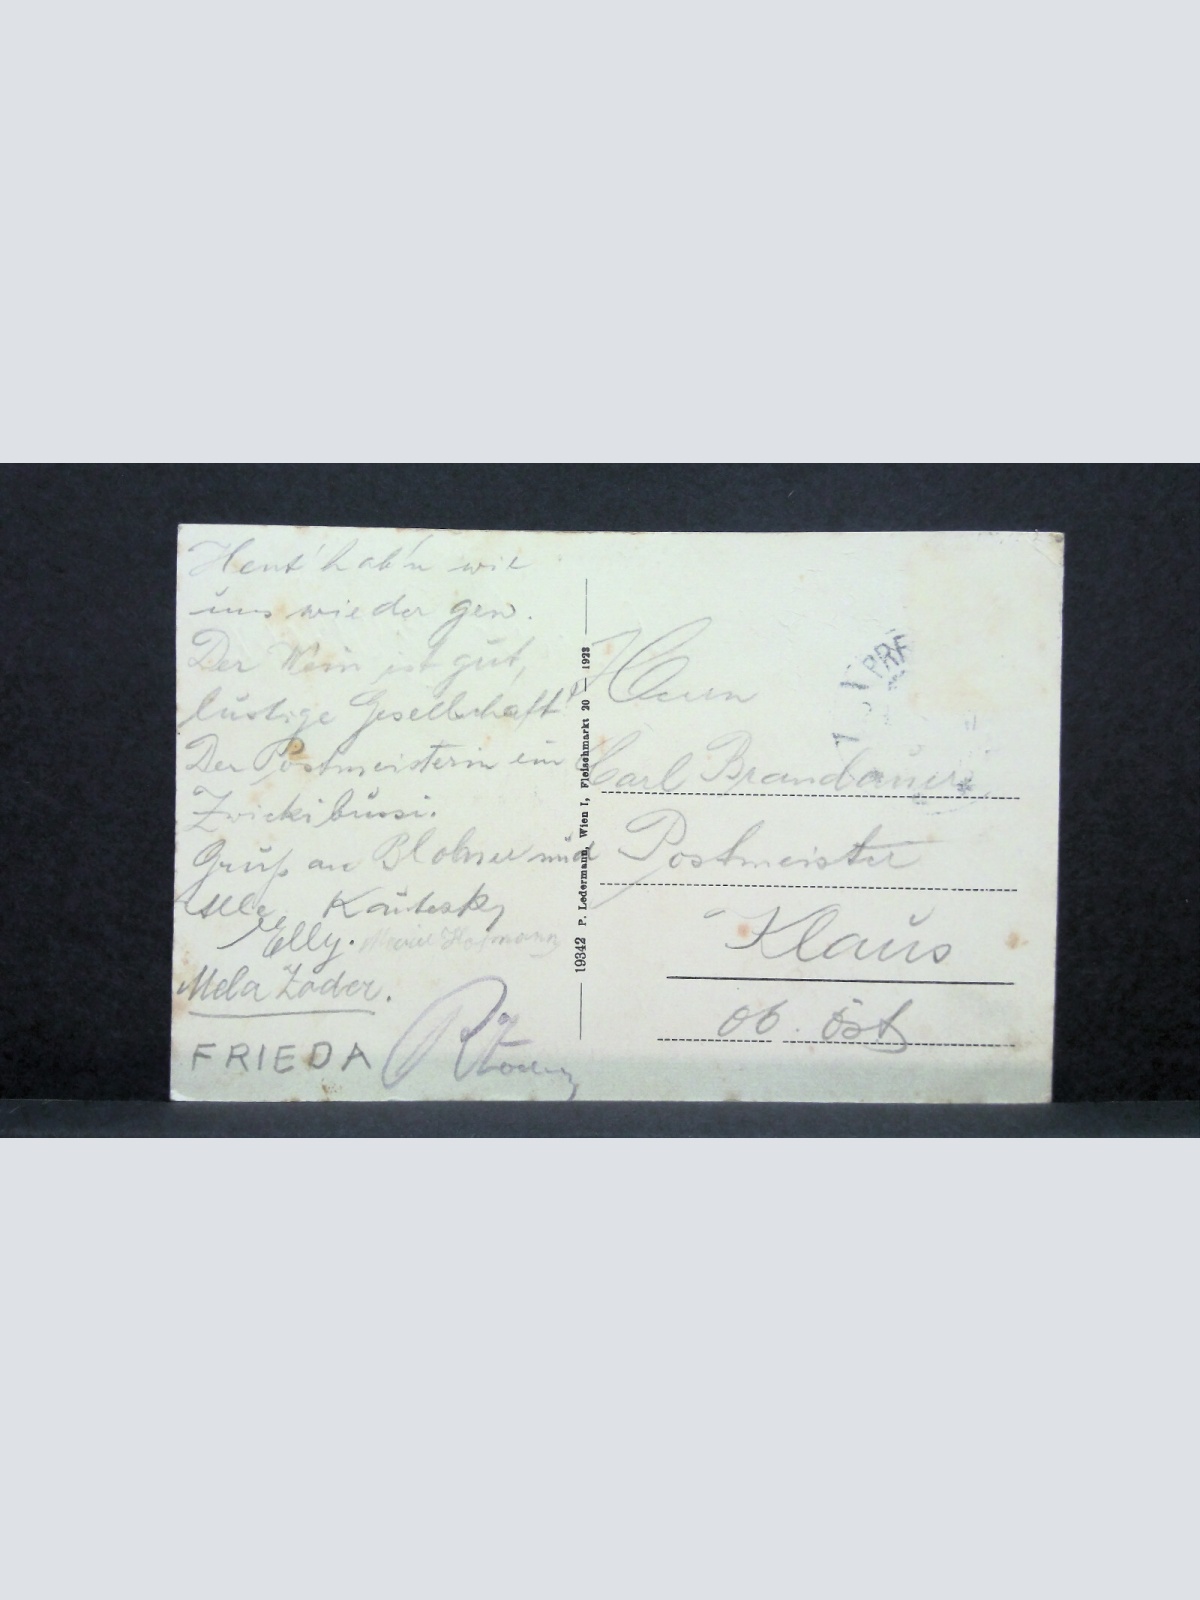 Heut' hab'n wir
uns wieder gen.
Der Wein ist gut,
lustige Gesellschaft!
Der Postmeisterin ein
Zwickibussi.
Gruß an und
Alle Kautesky
Elly. Marie Hofmann
Mela Zoder.
FRIEDA
19342 P. Ledermann, Wien I, Fleischmarkt 20 — 1923
Herrn
Carl Brandauer
Postmeister
Klaus
ob. Öst
PRE